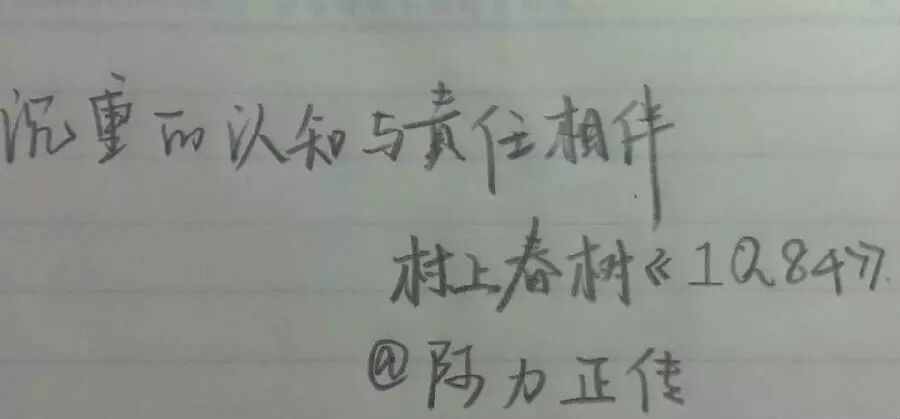 沉重的认知与责任相伴
村上春树《1Q84》
@阿力正传